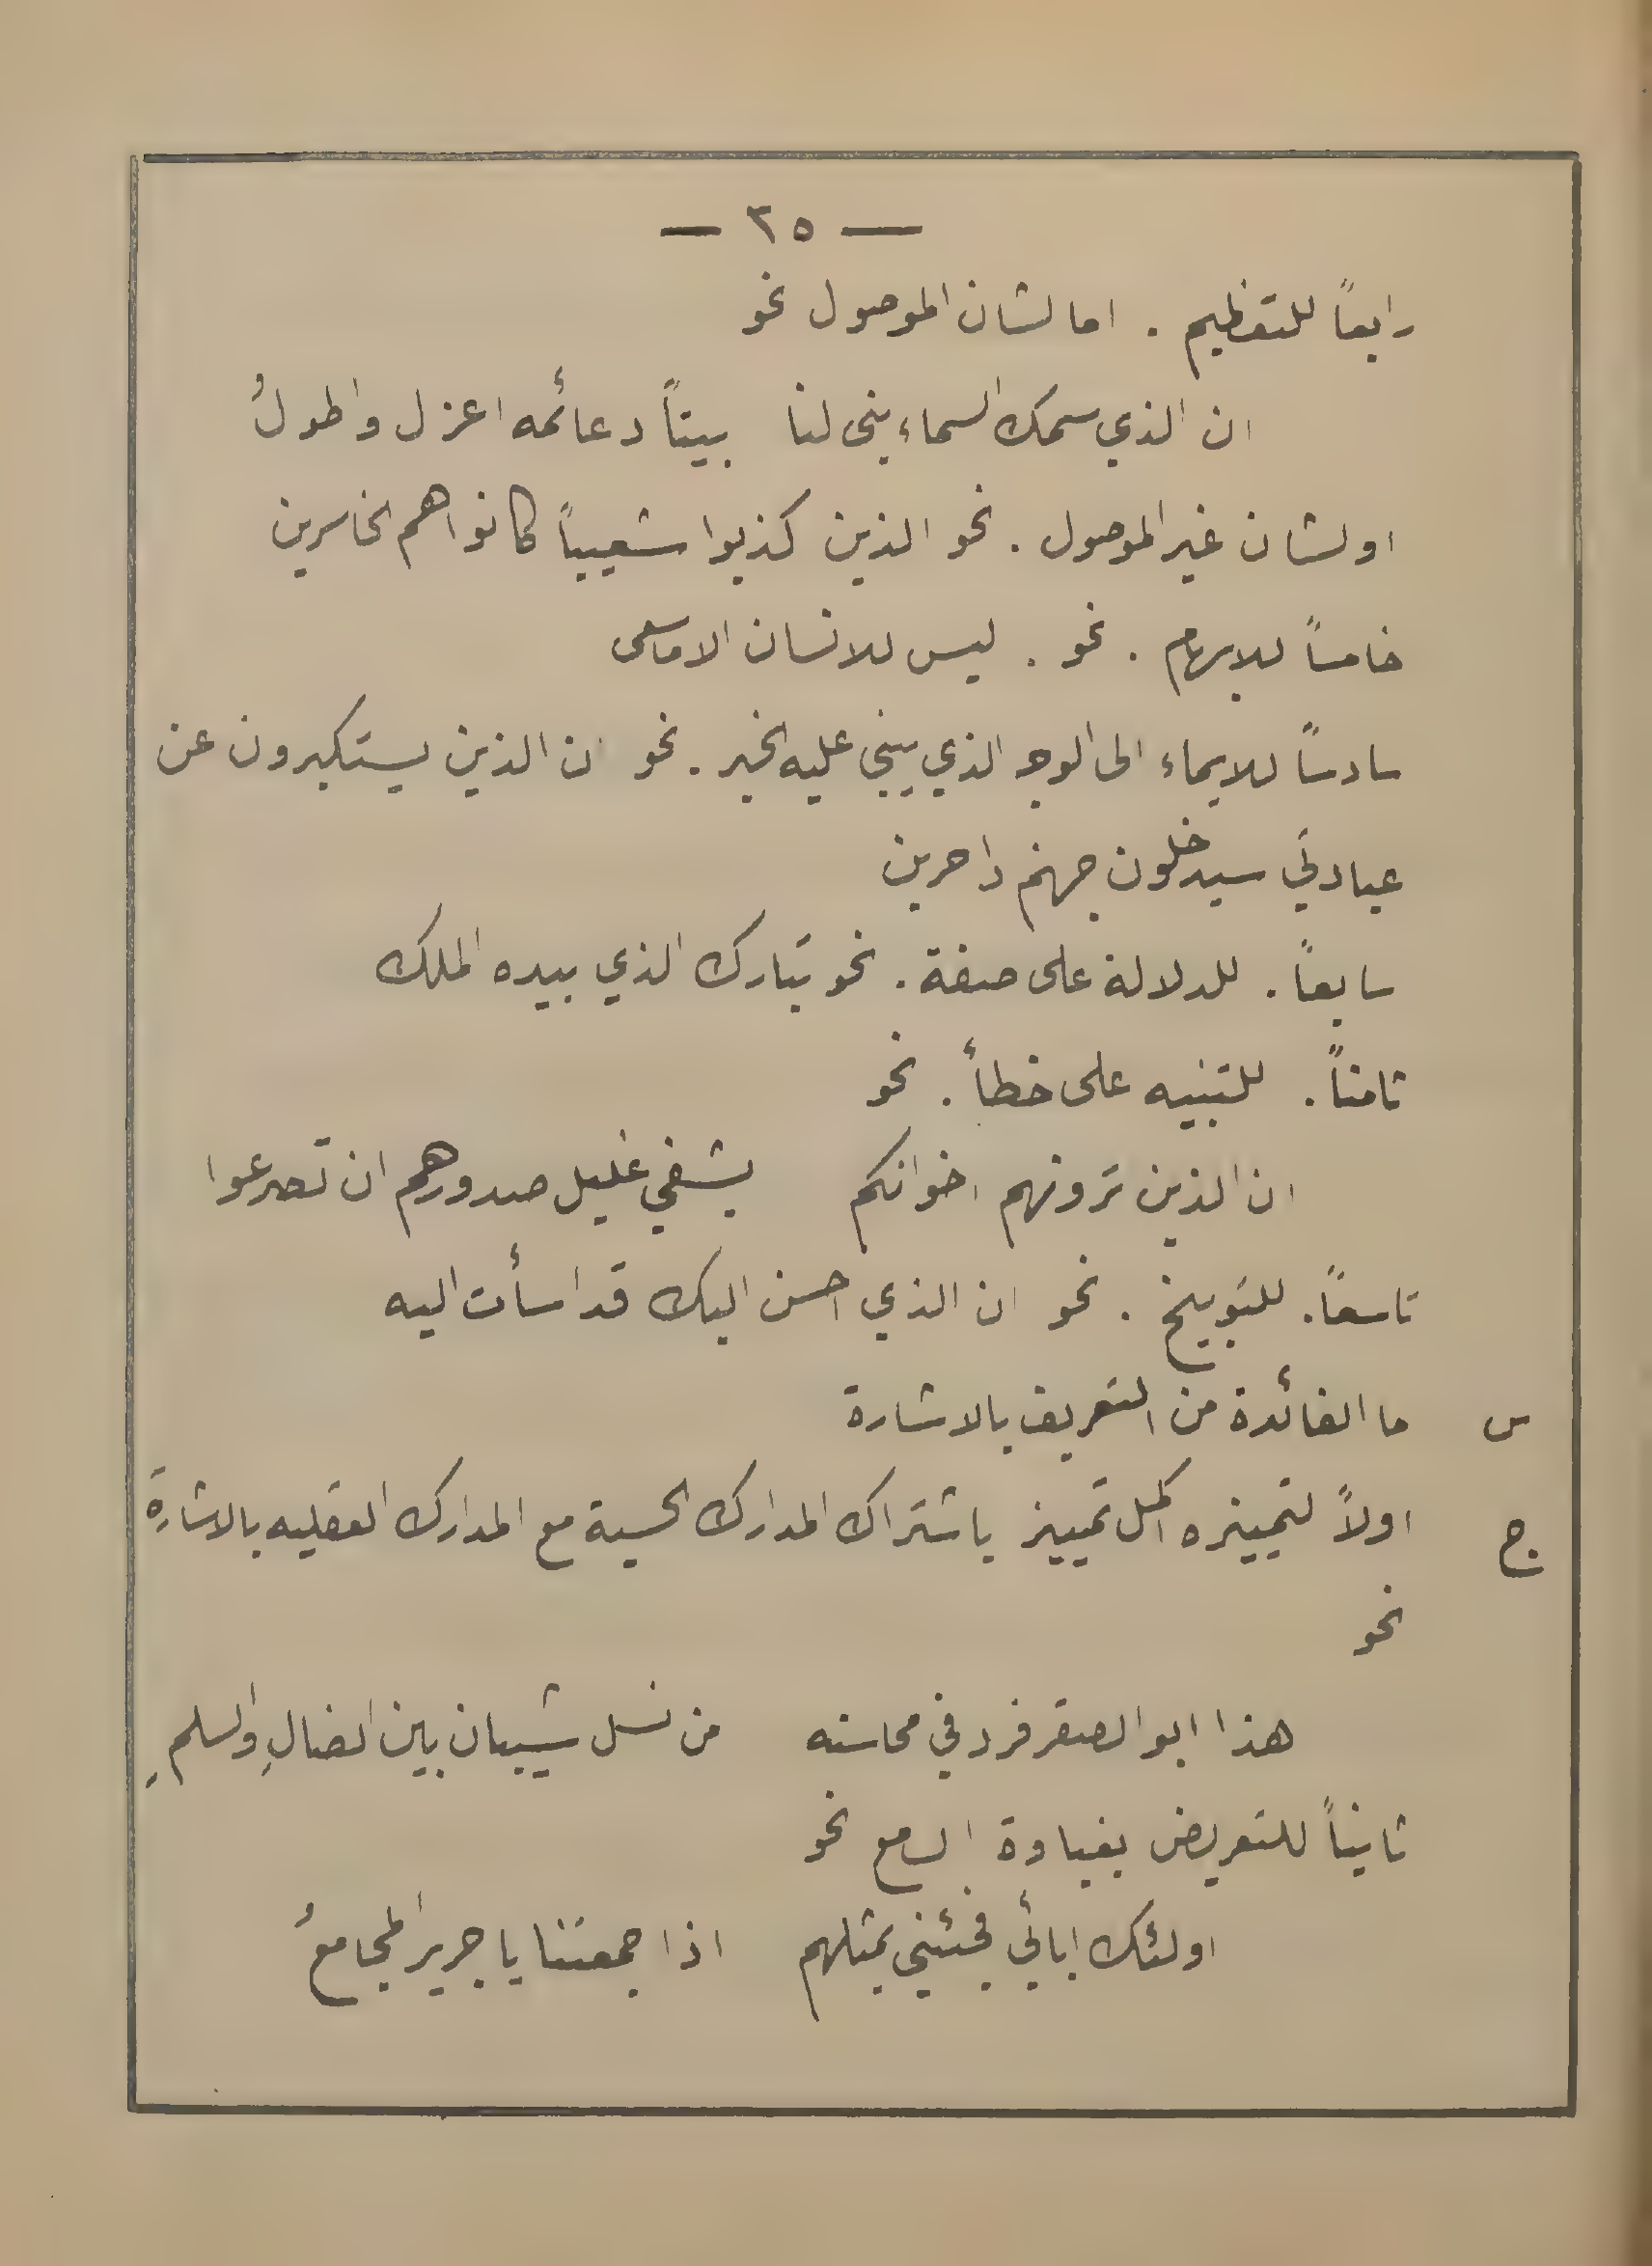 — ٢٥ —
رابعاً للتعظيم . اما لشان الموصول نحو
ان الذي سمك السماء بنى لنا بيتاً دعائمه اعزل واطولُ
او لشان غير الموصول . نحو الذين كذبوا شعيباً كانوا هم الخاسرين
خامساً للابهام . نحو . ليس للانسان الا ما سعى
سادساً للايماء الى الوجه الذي يبنى عليه الخبر . نحو ان الذين يستكبرون عن
عبادتي سيدخلون جهنم داحرين
سابعاً . للدلالة على صفة . نحو تبارك الذي بيده الملك
ثامناً . للتنبيه على خطأ . نحو
ان الذين ترونهم اخوانكم يشفي غليل صدورهم ان تصرعوا
تاسعاً . للتوبيخ . نحو ان الذي احسن اليك قد اسأت اليه
س ما الفائدة من التعريف بالاشارة
ج اولاً لتمييزه اكمل تمييز باشتراك المدارك الحسية مع المدارك العقليه بالاشارة
نحو
هذا ابو الصقر فرد في محاسنه من نسل شيبان بين الضالِ والسلمِ
ثانياً للتعريض بغباوة السامع نحو
اولئك ابائي فجئني بمثلهم اذا جمعتنا يا جرير المجامعُ